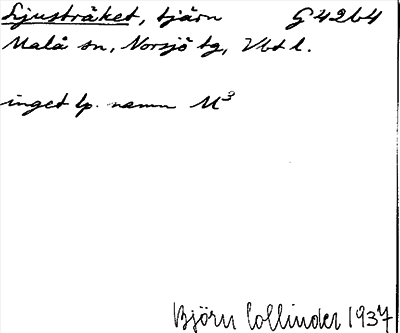 Ljusträket, tjärn G42b4
Malå sn, Norsjö tg, Vbtl.
inget lp. namn M³
Björn Collinder 1937